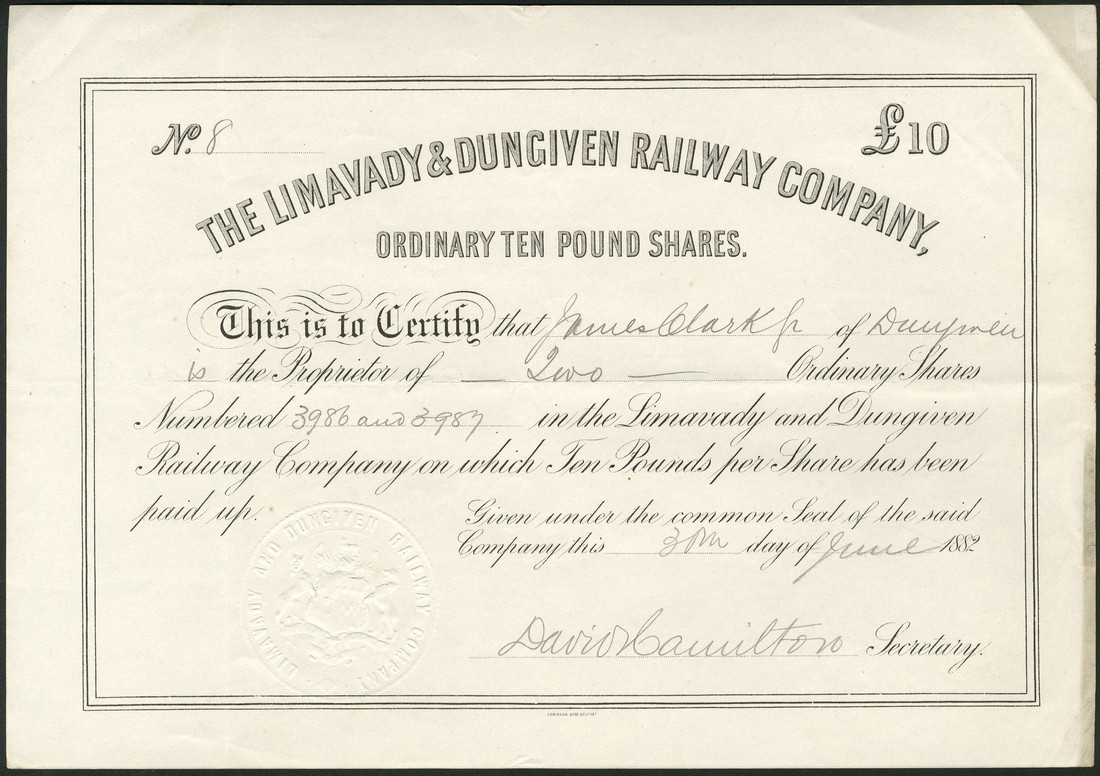 No. 8
£10
THE LIMAVADY & DUNGIVEN RAILWAY COMPANY,
ORDINARY TEN POUND SHARES.
This is to Certify that James Clark Jr of Dungiven
is the Proprietor of — Two — Ordinary Shares
Numbered 3986 and 3987 in the Limavady and Dungiven
Railway Company on which Ten Pounds per Share has been
paid up.
Given under the common Seal of the said
Company this 30th day of June 1882
LIMAVADY AND DUNGIVEN RAILWAY COMPANY
David Hamilton Secretary.